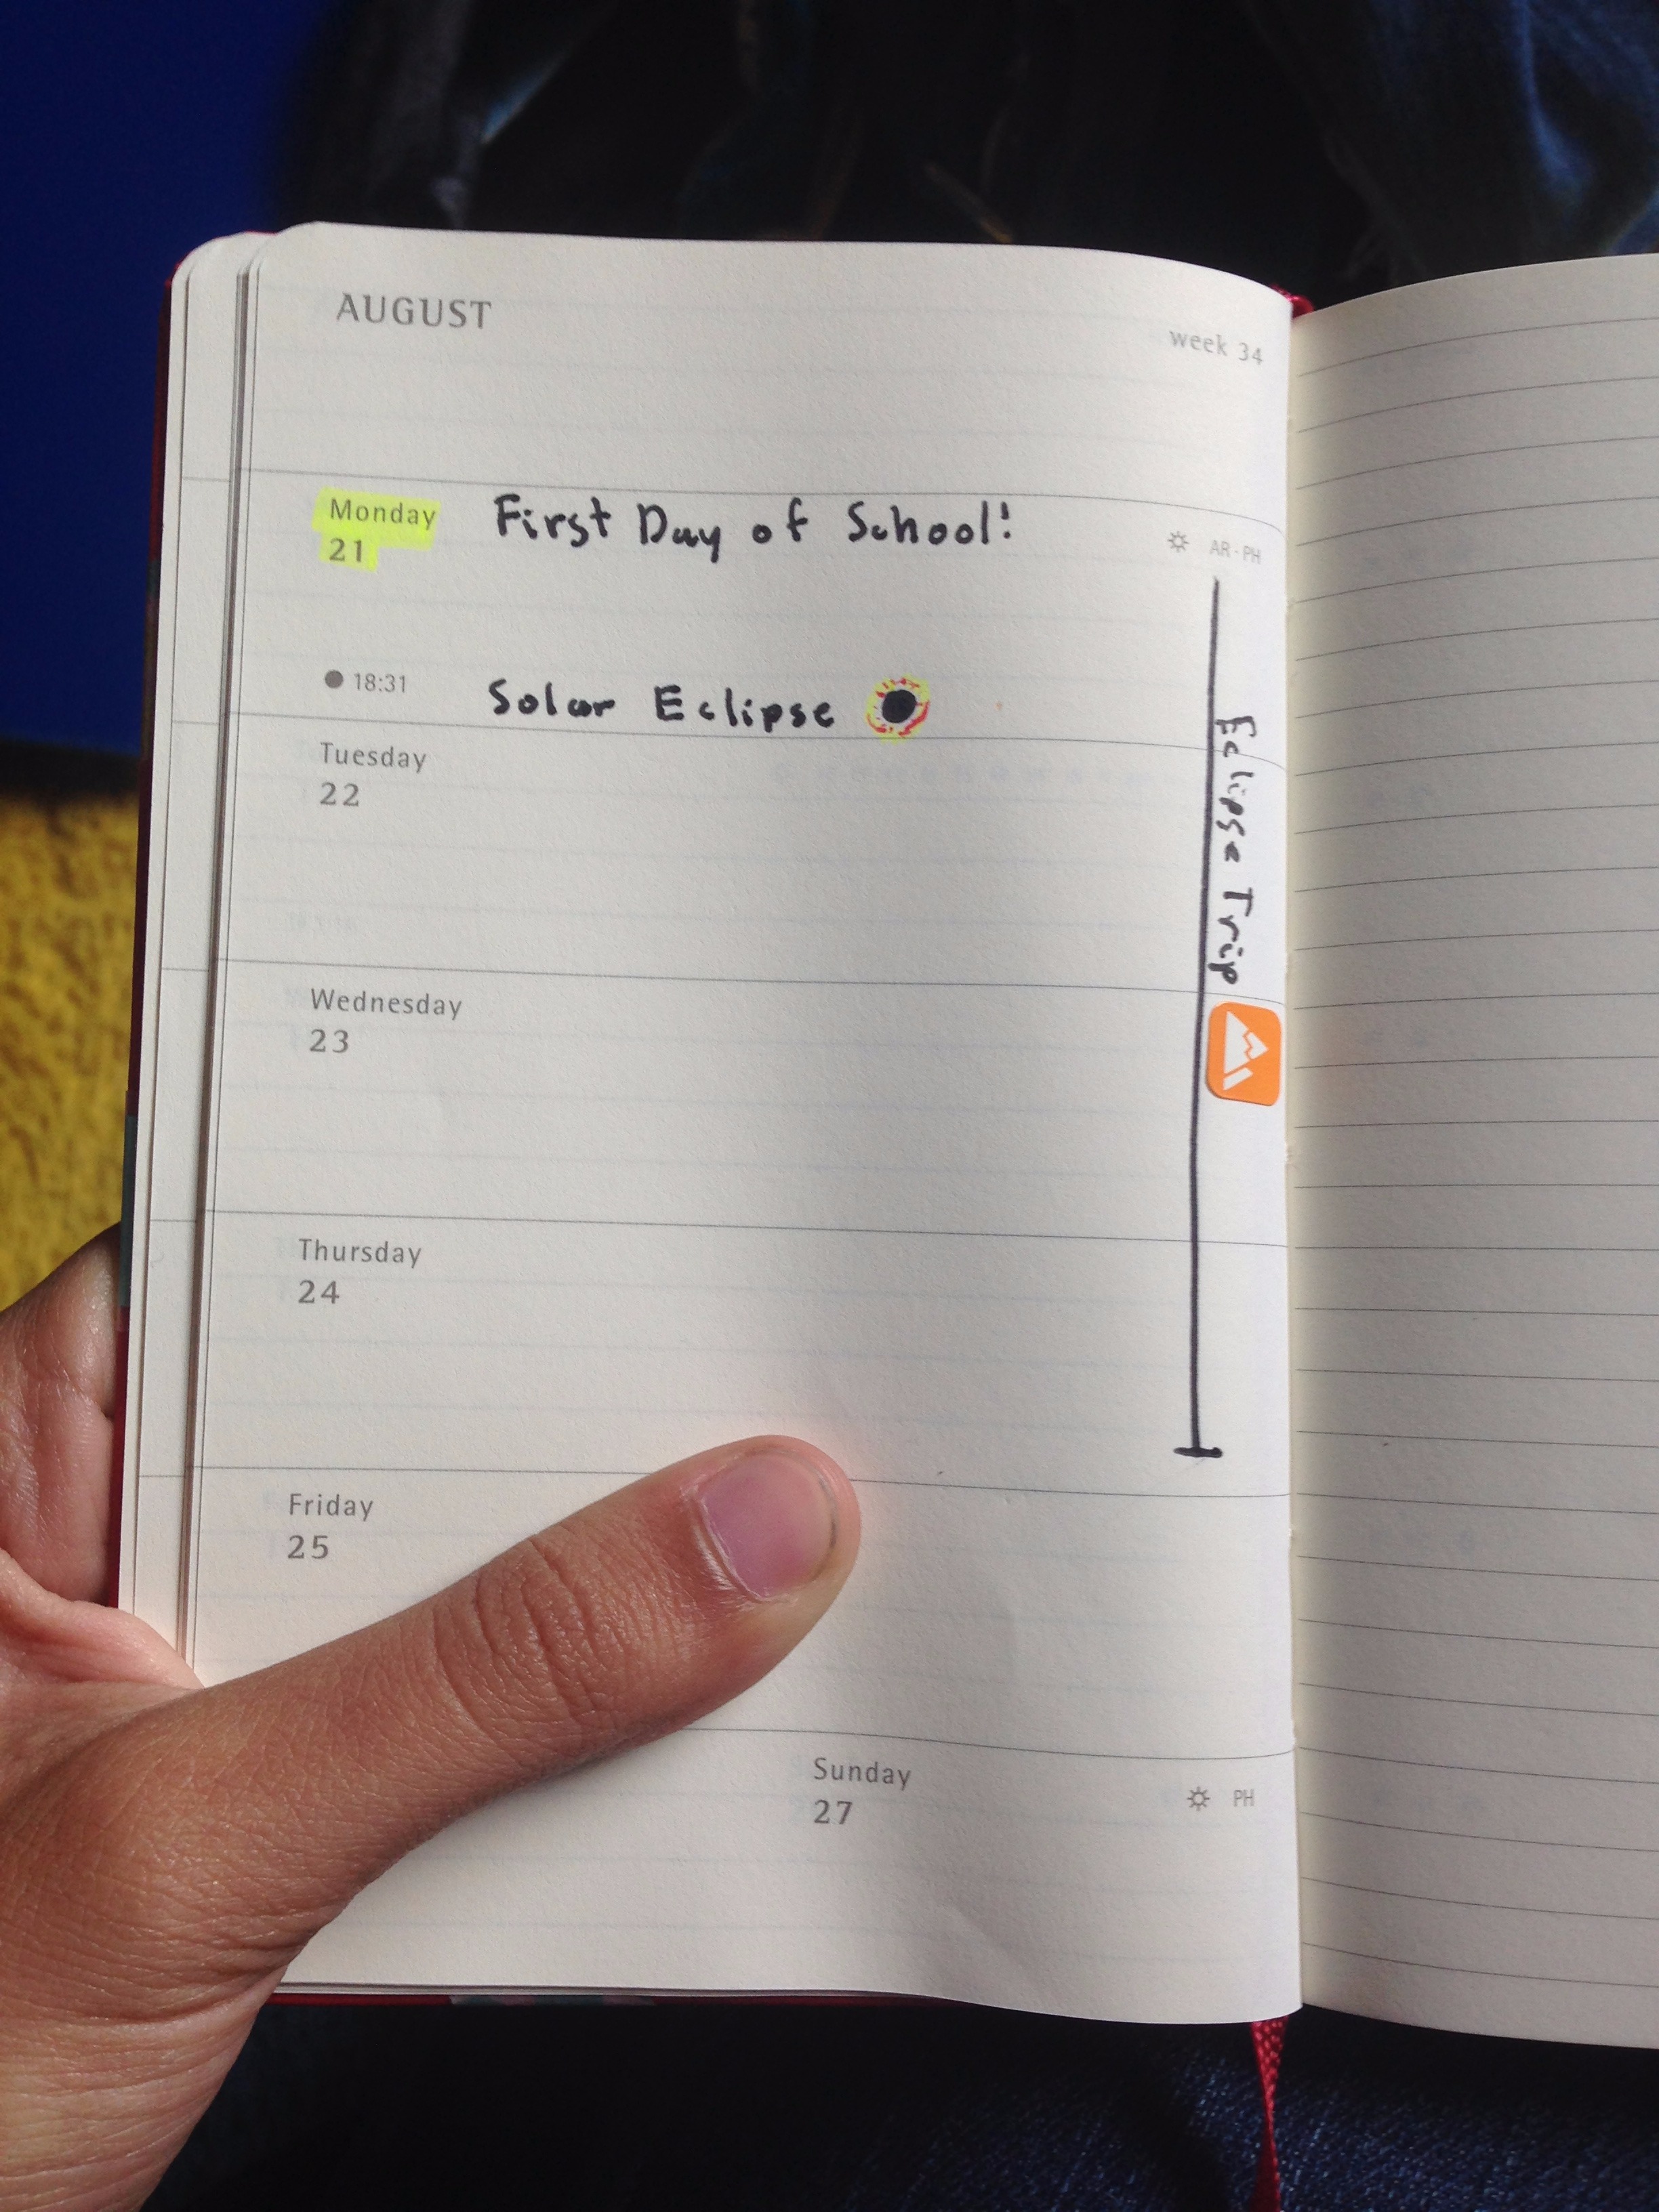 AUGUST
week 34
Monday
21
First Day of School!
AR · PH
18:31
Solar Eclipse
Eclipse Trip
Tuesday
22
Wednesday
23
Thursday
24
Friday
25
Sunday
27
PH